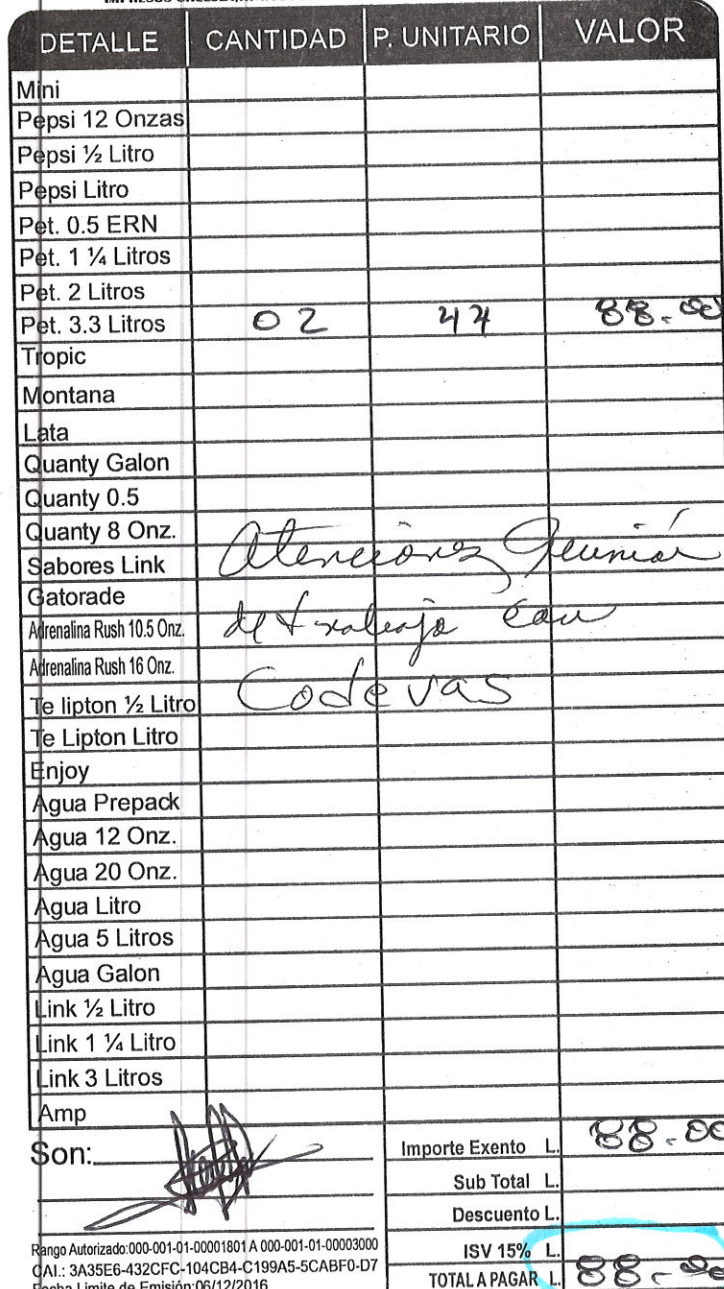 DETALLE CANTIDAD P. UNITARIO VALOR
Mini
Pepsi 12 Onzas
Pepsi ½ Litro
Pepsi Litro
Pet. 0.5 ERN
Pet. 1 ¼ Litros
Pet. 2 Litros
Pet. 3.3 Litros 02 44 88.00
Tropic
Montana
Lata
Quanty Galon
Quanty 0.5
Quanty 8 Onz.
Sabores Link
Atenciones Reunión
Gatorade
Adrenalina Rush 10.5 Onz.
de trabajo con
Adrenalina Rush 16 Onz.
Te lipton ½ Litro
Codevas
Te Lipton Litro
Enjoy
Agua Prepack
Agua 12 Onz.
Agua 20 Onz.
Agua Litro
Agua 5 Litros
Agua Galon
Link ½ Litro
Link 1 ¼ Litro
Link 3 Litros
Amp
Son:
Importe Exento L. 88.00
Sub Total L.
Descuento L.
ISV 15% L.
TOTAL A PAGAR L. 88.00
Rango Autorizado:000-001-01-00001801 A 000-001-01-00003000
CAI.: 3A35E6-432CFC-104CB4-C199A5-5CABF0-D7
Fecha Limite de Emisión:06/12/2016